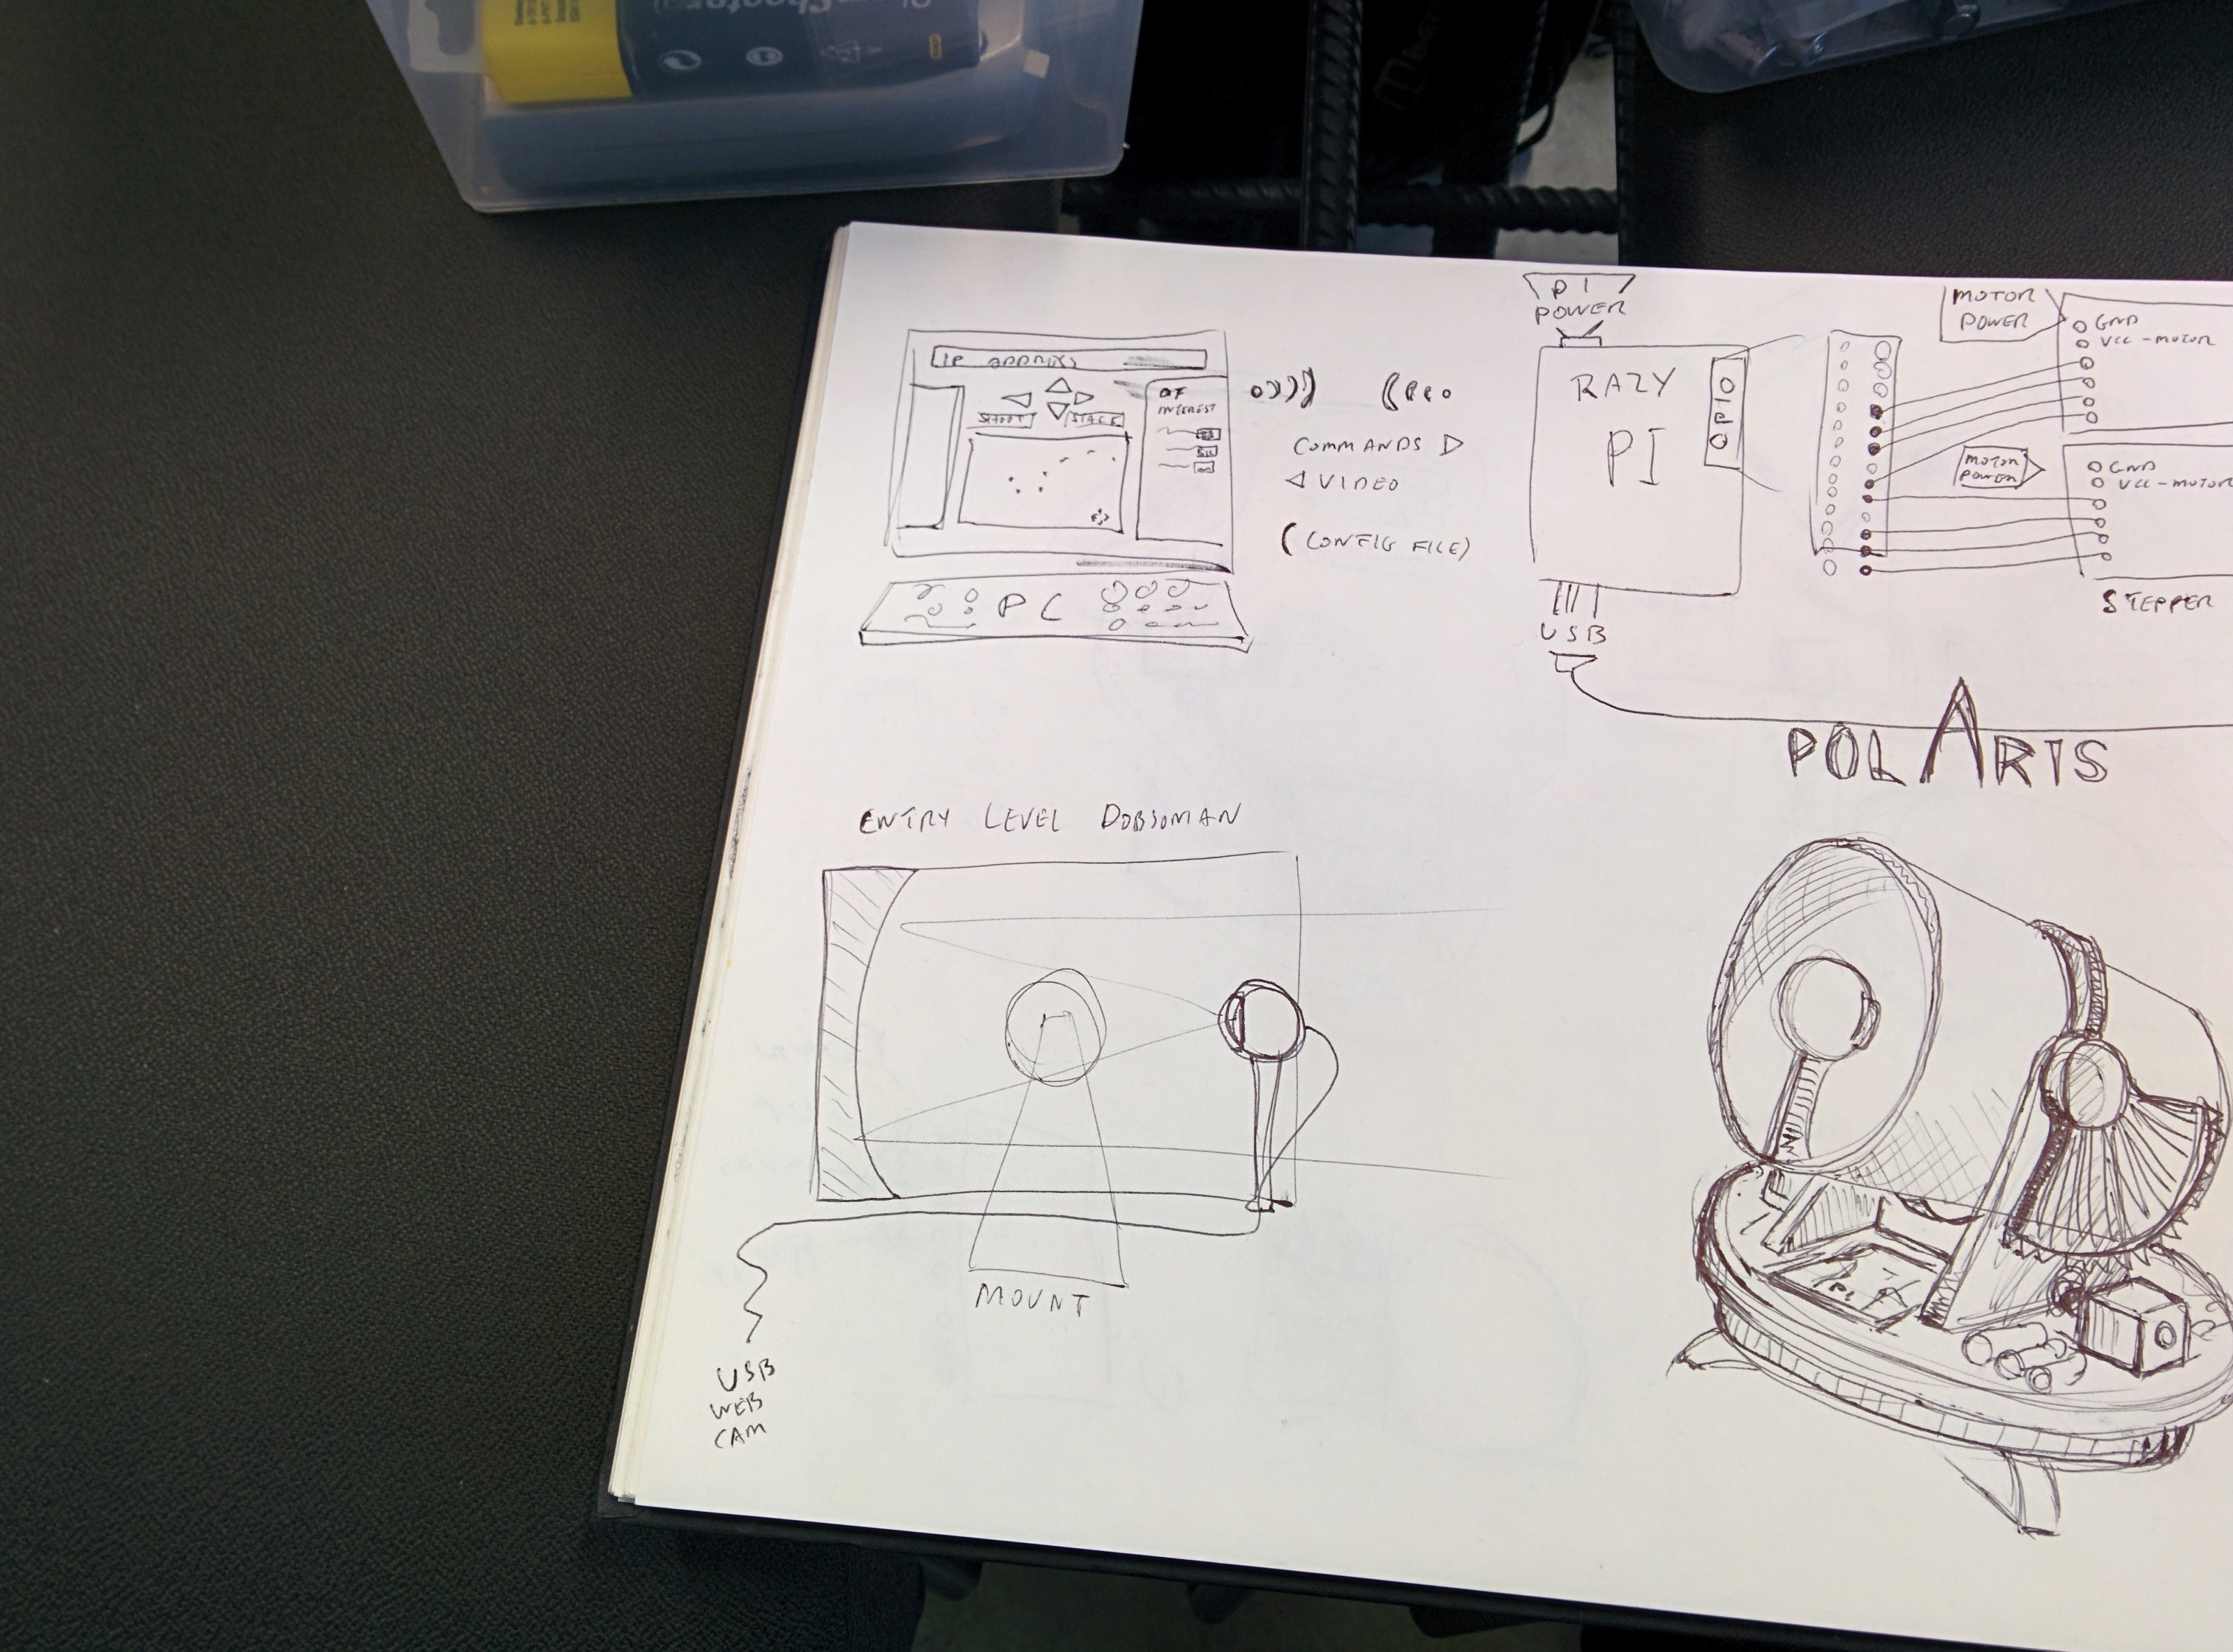 IP ADDRESS
SHOOT
STACK
OF
INTEREST
PC
COMMANDS
VIDEO
(CONFIG FILE)
PI
POWER
RAZY
PI
GPIO
USB
MOTOR
POWER
GND
VCC-MOTOR
MOTOR
POWER
GND
VCC-MOTOR
STEPPER
POLARIS
ENTRY LEVEL DOBSOMAN
MOUNT
USB
WEB
CAM
PI